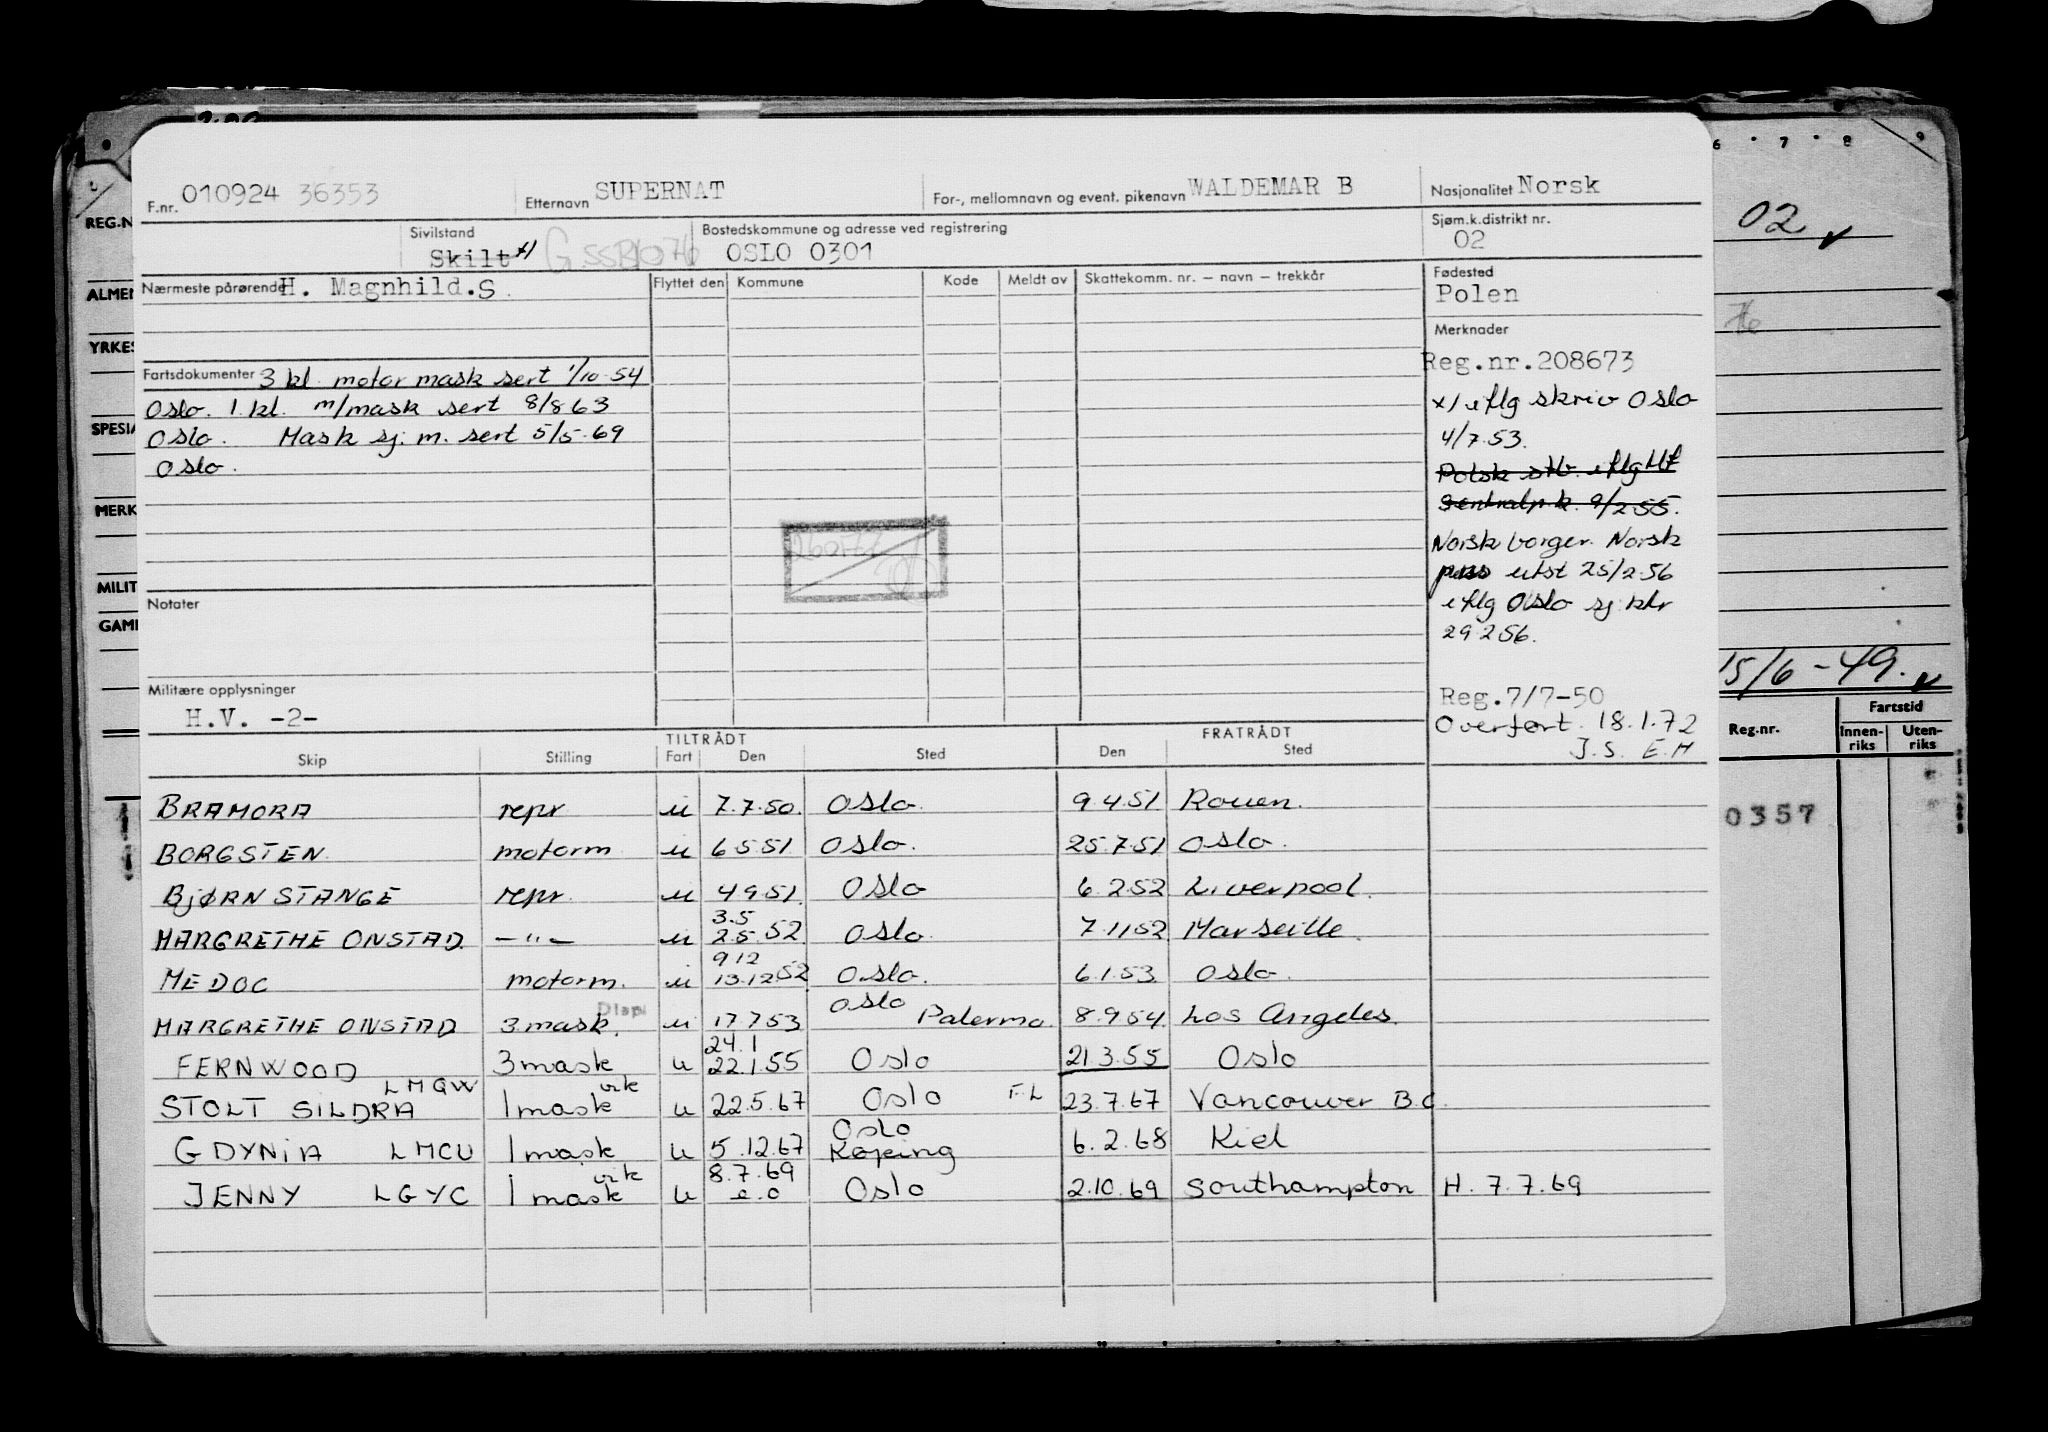 F.nr. 010924 36353 Etternavn SUPERNAT For-, mellomnavn og event. pikenavn WALDEMAR B Nasjonalitet Norsk
Sivilstand Skilt x/ Bostedskommune og adresse ved registrering OSLO 0301 Sjøm.k.distrikt nr. 02
Nærmeste pårørende H. Magnhild.S. Flyttet den Kommune Kode Meldt av Skattekomm. nr. – navn – trekkår Fødested Polen
Merknader
Reg.nr.208673
x/ iflg skriv Oslo
4/7.53.
Polsk stb. iflg
Sentralp.k. 9/2 55.
Norsk borger. Norsk
pass utst 25/2-56
iflg Oslo sj. ktr
29256.
Reg.7/7-50
Overført. 18.1.72
J.S. E.H
Fartsdokumenter 3 kl. motor mask sert 1/10-54
Oslo. 1. kl. m/mask sert 8/8 63
Oslo. Mask sj. m. sert 5/5-69
Oslo.
Notater
Militære opplysninger
H.V. -2-
TILTRÅDT FRATRÅDT
Skip Stilling Fart Den Sted Den Sted
BRAMORA repr u 7.7.50. Oslo. 9.4.51 Rouen.
BORGSTEN. motorm u 6 5 51. Oslo. 25.7.51 Oslo.
BJØRN STANGE repr. u 4 9 51. Oslo 6.2.52 Liverpool.
3.5
MARGRETHE ONSTAD. -"- u 2.5.52 Oslo. 7.1152 Marseille.
912
MEDOC motorm. u 13.12 52 Oslo. 6.1.53 Oslo.
Disp. Oslo
MARGRETHE ONSTAD 3.mask. u 17753 Palermo. 8.954. Los Angeles.
24.1
FERNWOOD 3 mask u 22.1.55 Oslo 21.3.55 Oslo
LMQW vik
STOLT SILDRA 1 mask u 22.5.67 Oslo F.L 23.7.67 Vancouver B.C.
Oslo
GDYNIA LMCU 1 mask u 5.12.67 Køping 6.2.68 Kiel
vik 8.7.69
JENNY LGYC 1 mask u e.o Oslo 2.10.69 Southampton H. 7.7.69
REG.N
ALMEN
YRKES
SPESIA
MERK
MILIT
GAML
6 7 8 9
02
76
15/6-49.
Reg.nr. Fartstid
Innen-riks Uten-riks
0357